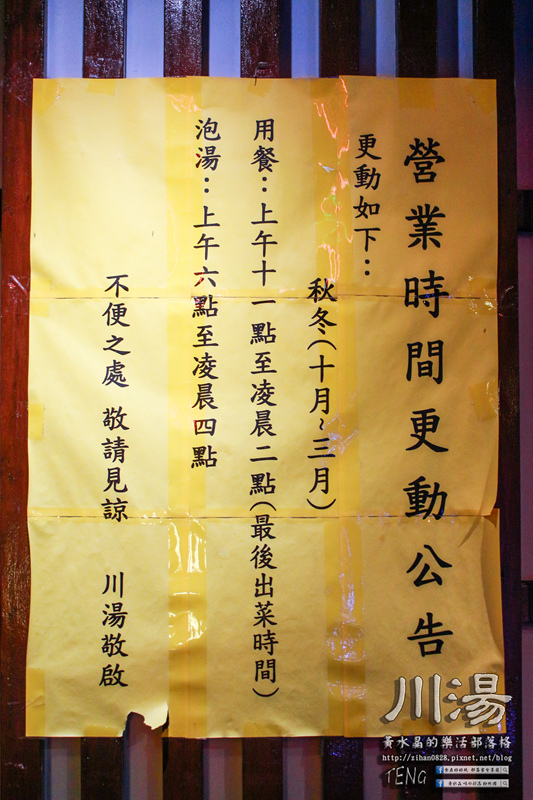 營業時間更動公告
更動如下：
秋冬(十月~三月)
用餐：上午十一點至凌晨二點(最後出菜時間)
泡湯：上午六點至凌晨四點
不便之處 敬請見諒 川湯敬啟
川湯
黃水晶的樂活部落格
http://sihan0828.pixnet.net/blog
TENG